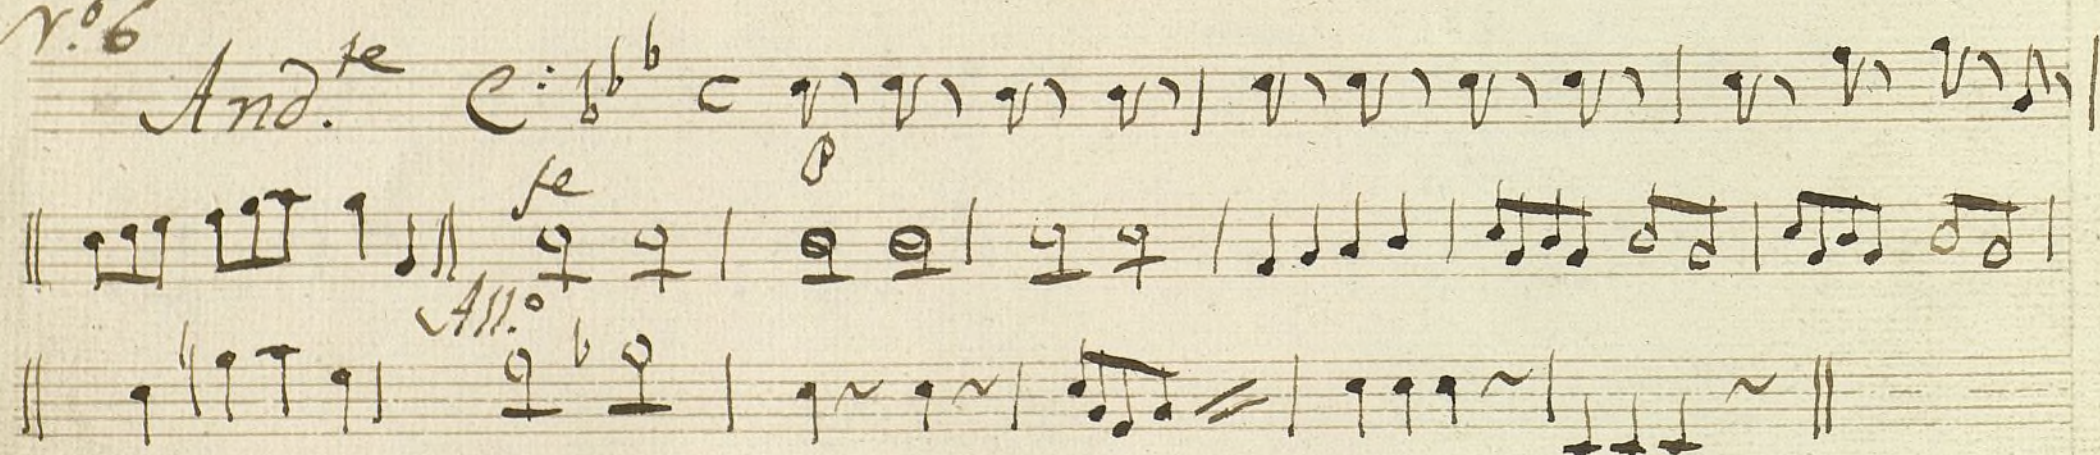 N.º 6
And.te
p
fe
All.º